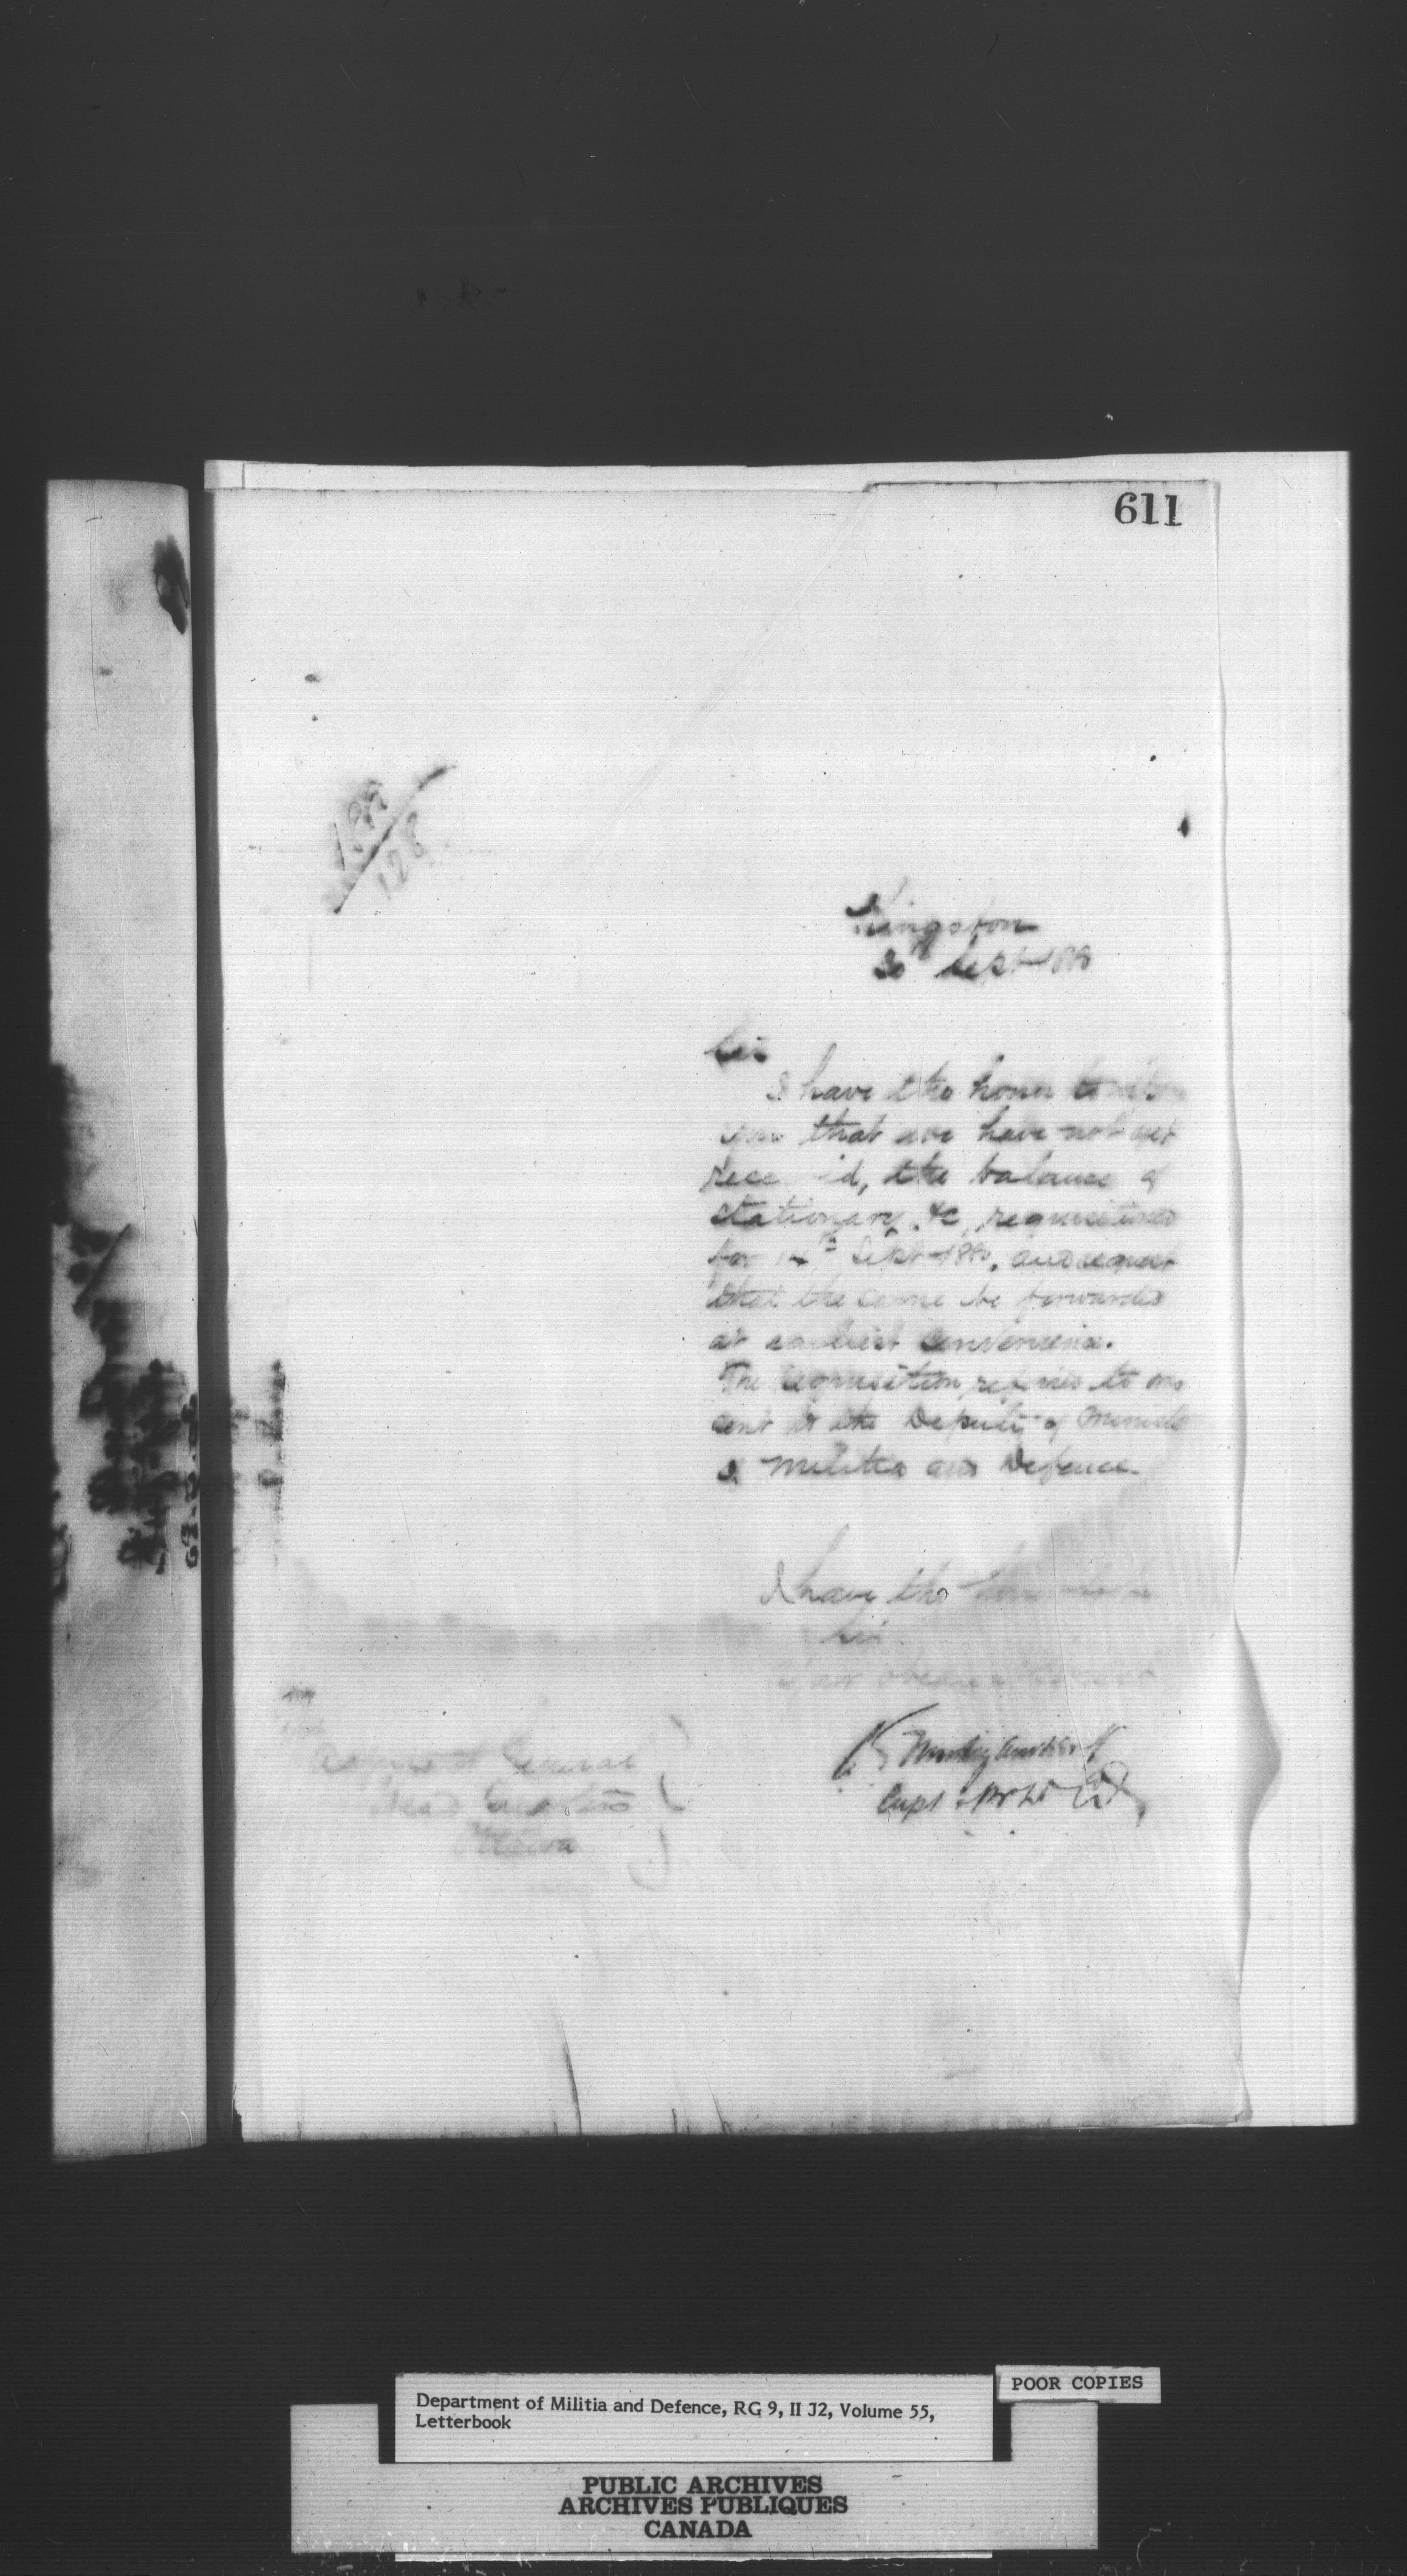 611
128
Kingston
30 Sept 1880
Sir
I have the honor to
you that we have not yet
rece d, the balance of
stationary &c, requisitioned
for 14th Sept 1880, and request
that the same be forwarded
at earliest convenience.
The requisition referred to was
sent to the Deputy of Minister
of Militia and Defence.
I have the honor to be
Sir
Your obedient servant
Capt
Adjutant General
Head Quarters
Ottawa
POOR COPIES
Department of Militia and Defence, RG 9, II J2, Volume 55,
Letterbook
PUBLIC ARCHIVES
ARCHIVES PUBLIQUES
CANADA